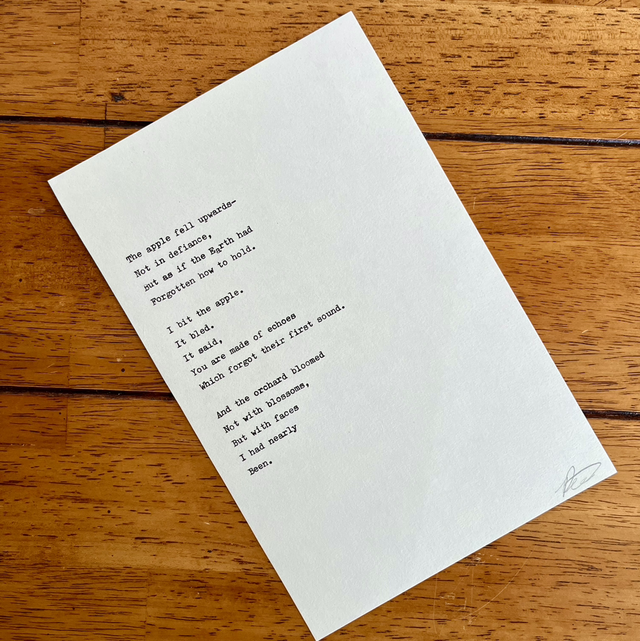 The apple fell upwards-
Not in defiance,
But as if the Earth had
Forgotten how to hold.
I bit the apple.
It bled.
It said,
You are made of echoes
Which forgot their first sound.
And the orchard bloomed
Not with blossoms,
But with faces
I had nearly
Been.